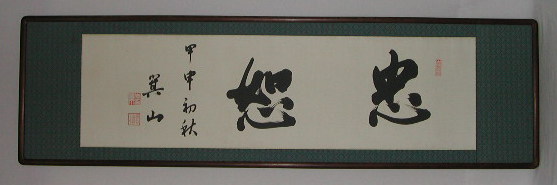 忠恕
甲申初秋
巽山